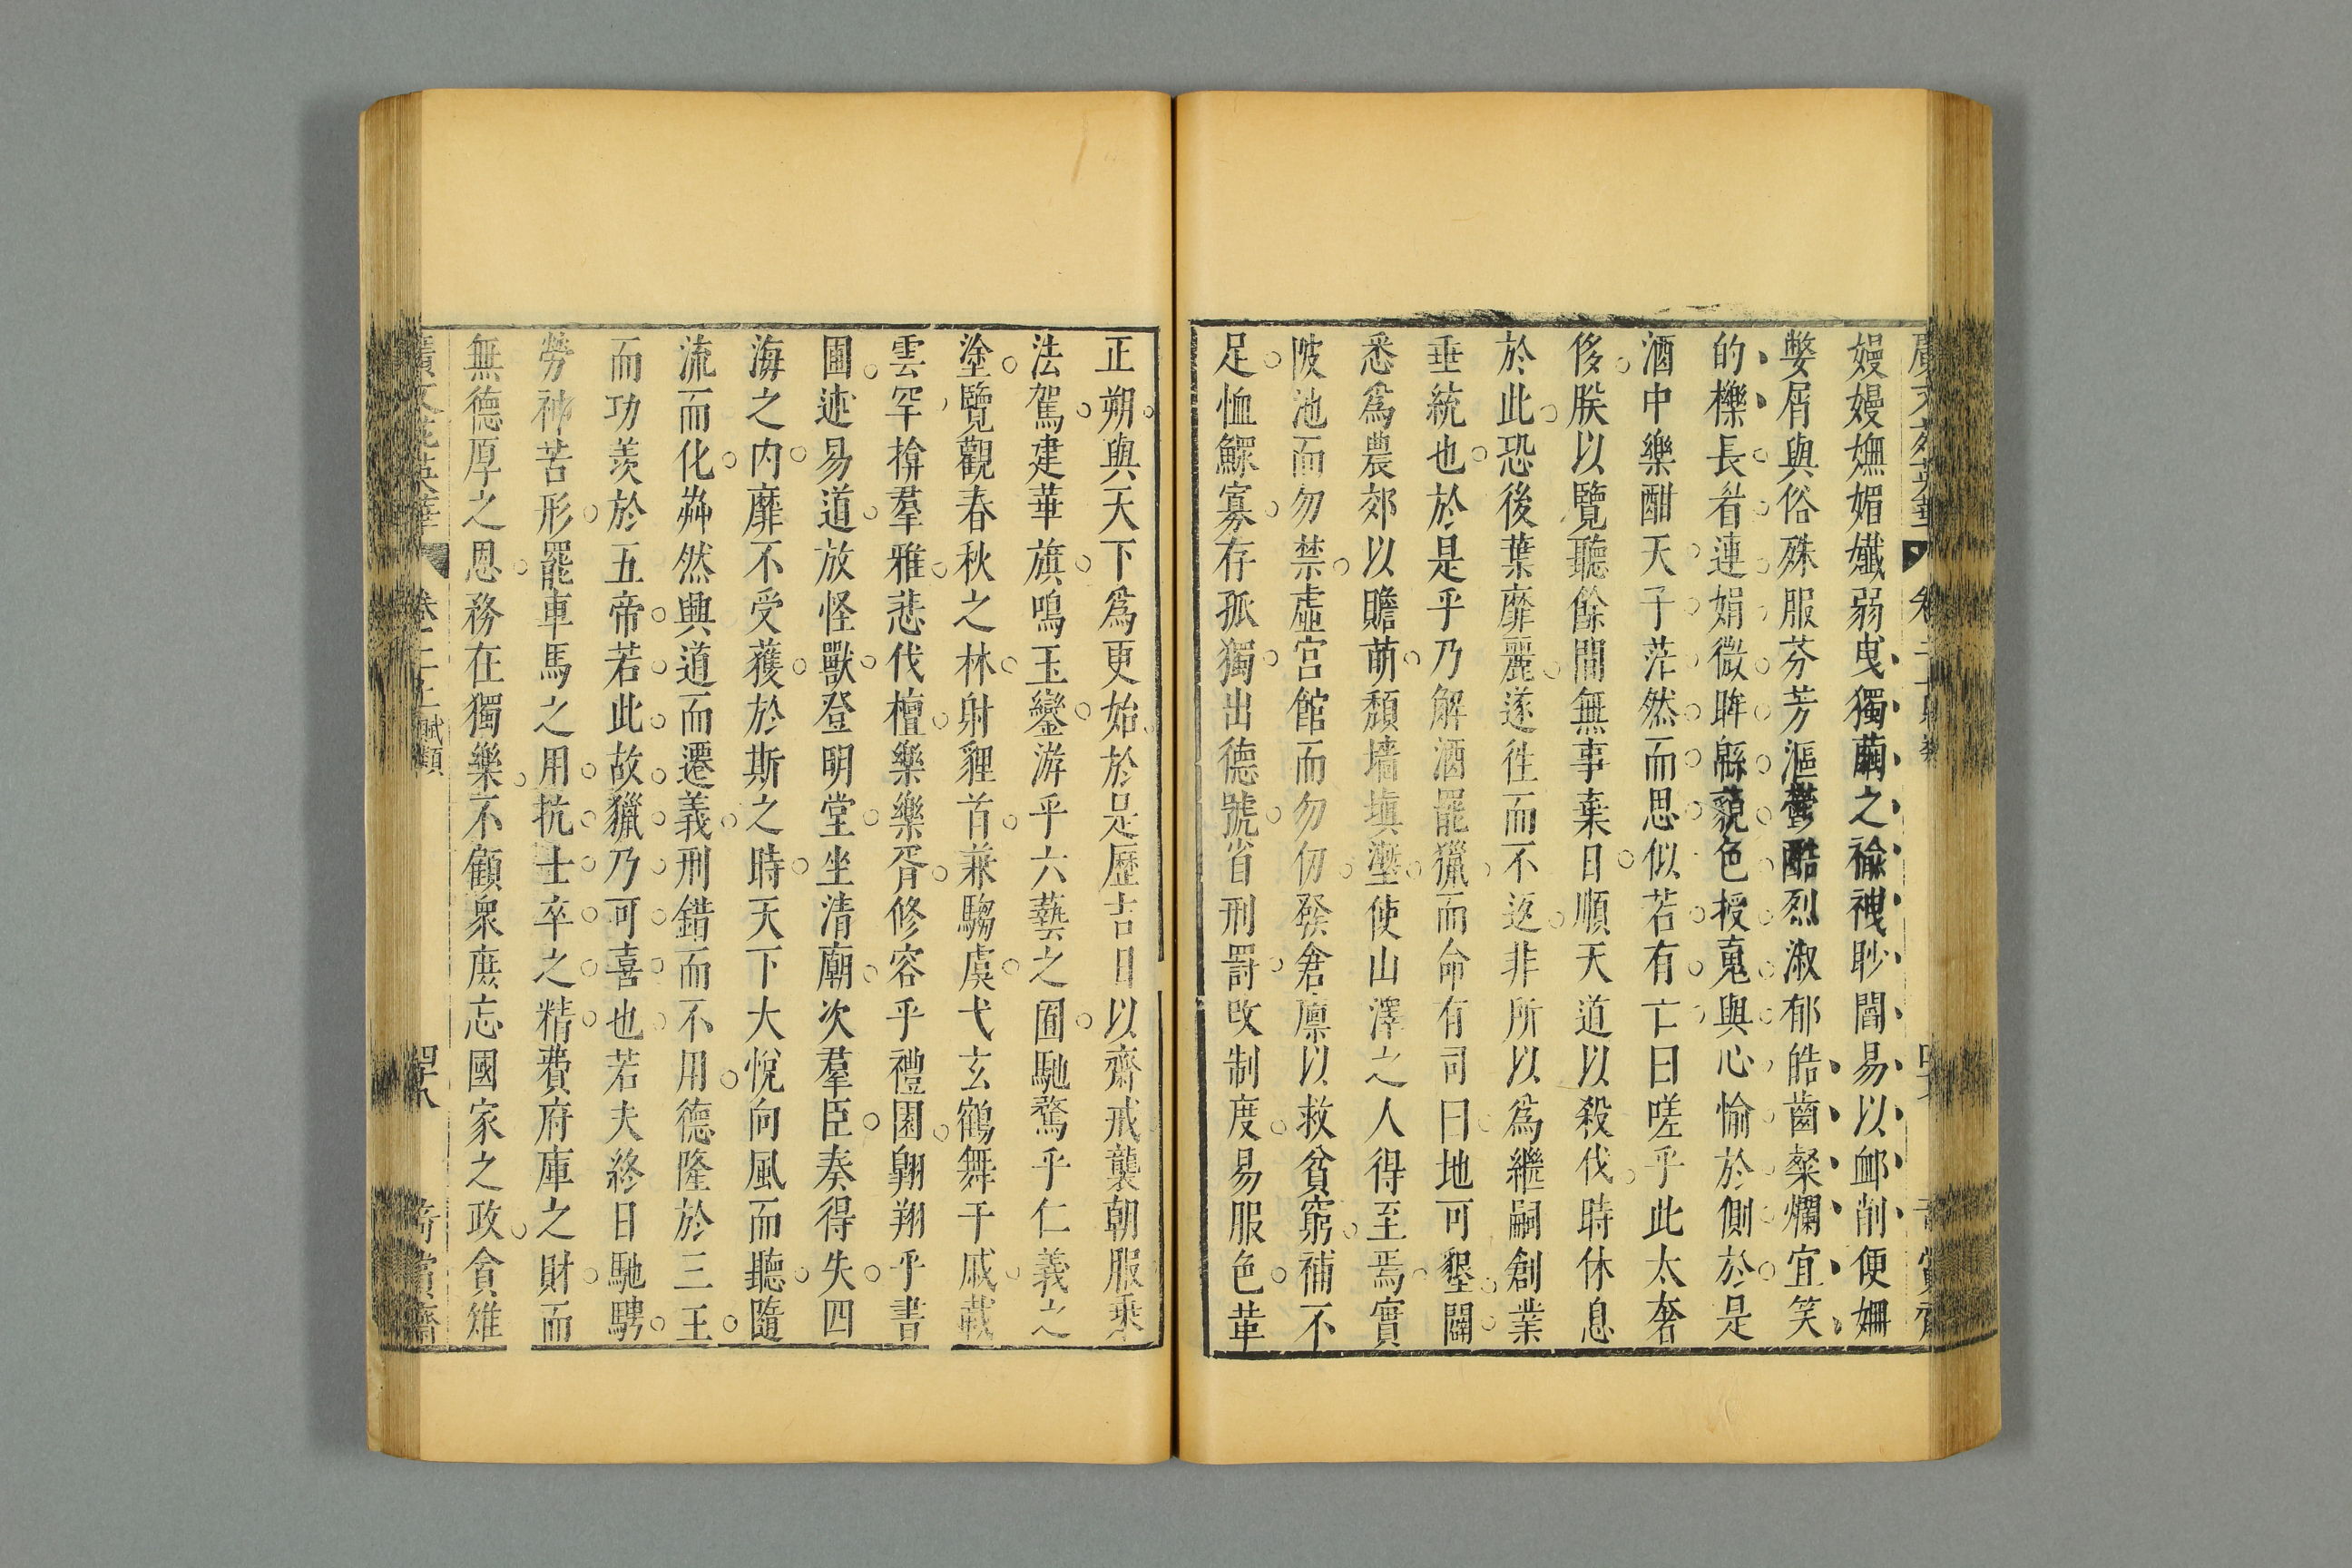 嫚嫚嫵媚孅弱曳獨繭之褕襪眇閻易以䘏削便姍
嫳屑與俗殊服芬芳漚鬱酷烈淑郁皓齒粲爛宜笑
的櫟長眉連娟微眸緜藐色授䰟與心愉於側於是
酒中樂酣天子茫然而思似若有亡曰嗟乎此太奢
侈朕以覽聽餘間無事棄日順天道以殺伐時休息
於此恐後葉靡麗遂徃而不返非所以爲繼嗣創業
垂統也於是乎乃解酒罷獵而命有司曰地可墾闢
悉爲農郊以贍萌頹墻塡壍使山澤之人得至焉實
陂池而勿禁虛宮館而勿仞發倉廪以救貧窮補不
足恤鰥寡存孤獨出德號省刑罸改制度易服色革
正朔與天下爲更始於是歷吉日以齋戒襲朝服乘
法駕建華旗鳴玉鸞游乎六藝之囿馳騖乎仁義之
塗覽觀春秋之林射貍首兼騶虞弋玄鶴舞干戚載
雲罕揜羣雅悲伐檀樂樂胥修容乎禮園翺翔乎書
圃述易道放怪獸登明堂坐清廟次羣臣奏得失四
海之内靡不受獲於斯之時天下大悅向風而聽隨
流而化芔然興道而遷義刑錯而不用德隆於三王
而功羨於五帝若此故獵乃可喜也若夫終日馳騁
勞神苦形罷車馬之用抗士卒之精費府庫之財而
無德厚之恩務在獨樂不顧衆庶忘國家之政貪雉
廣文苑英華 卷二十 賦類 四十八 奇賞齋